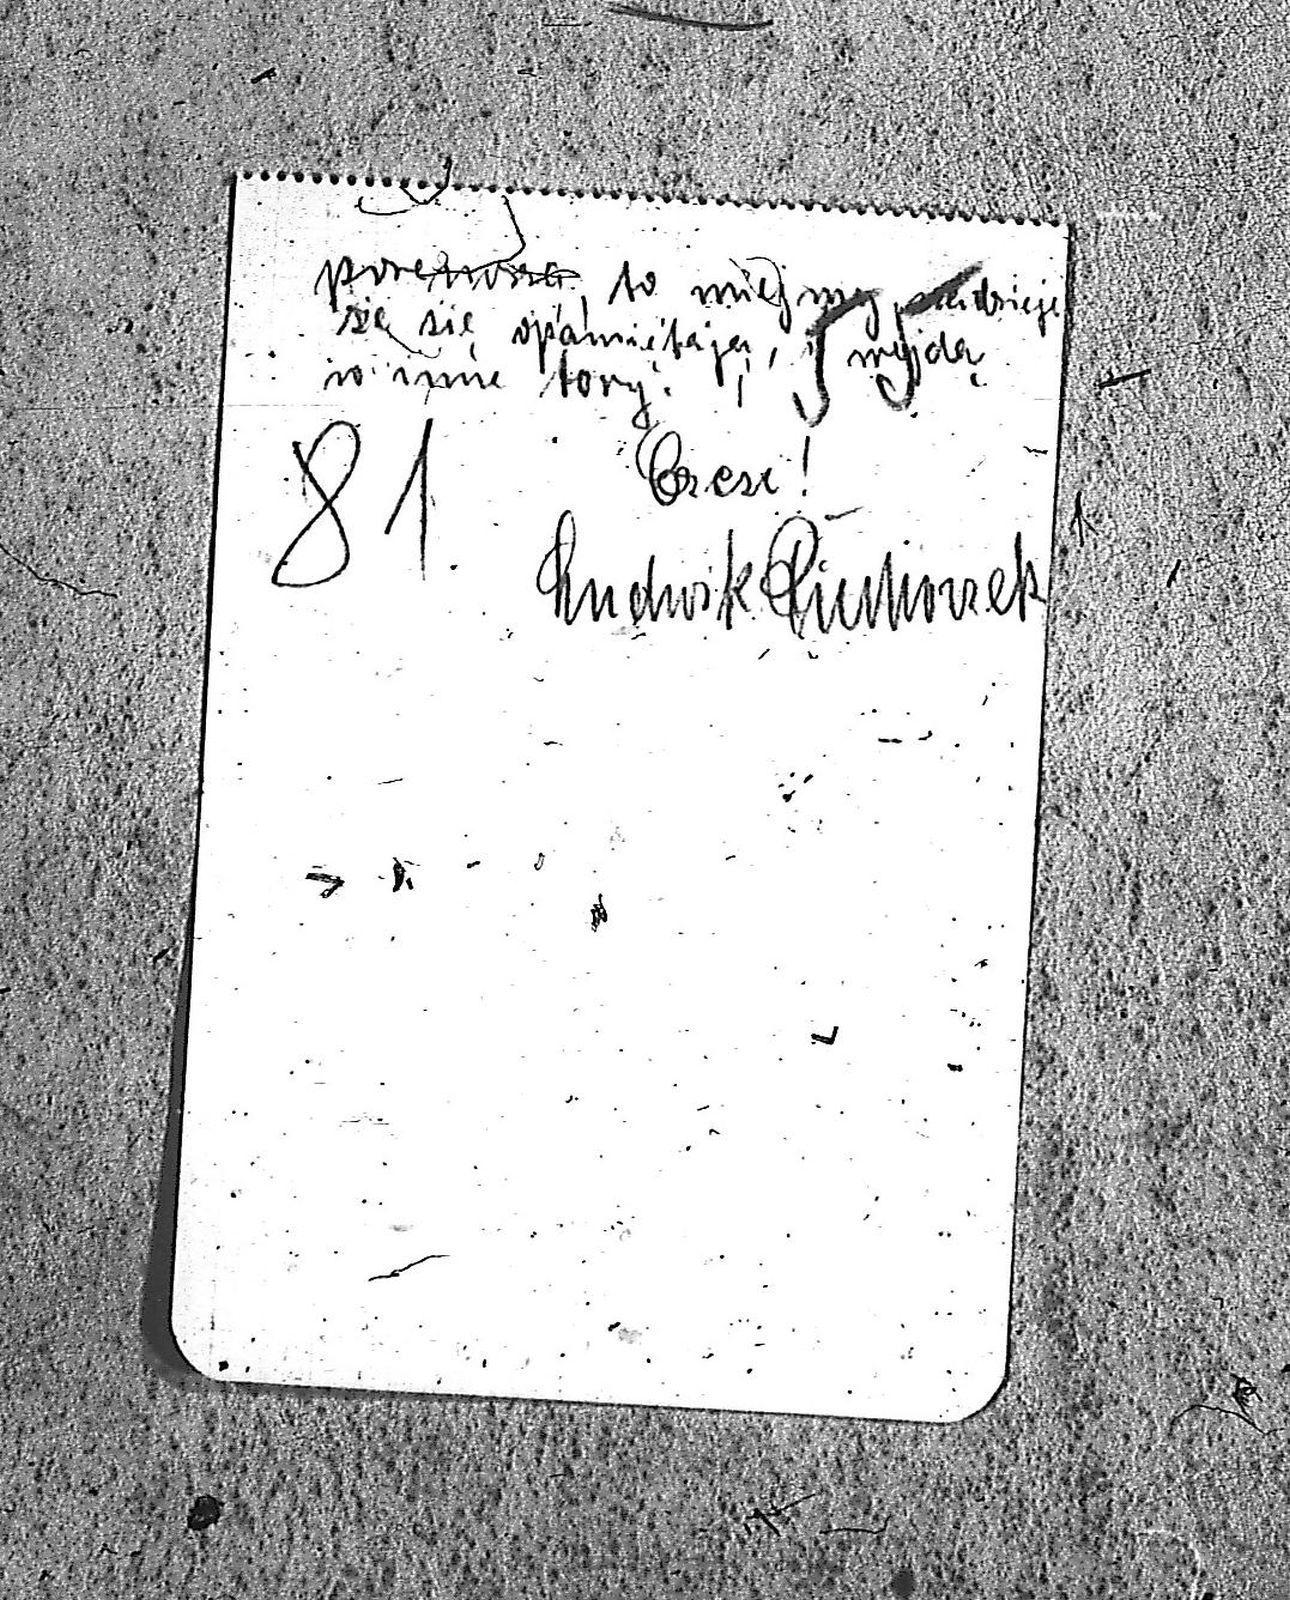 to miejmy nadzieję
że się opamiętają, i wyjdą
w inne tory.
81
Cześć!
Ludwik